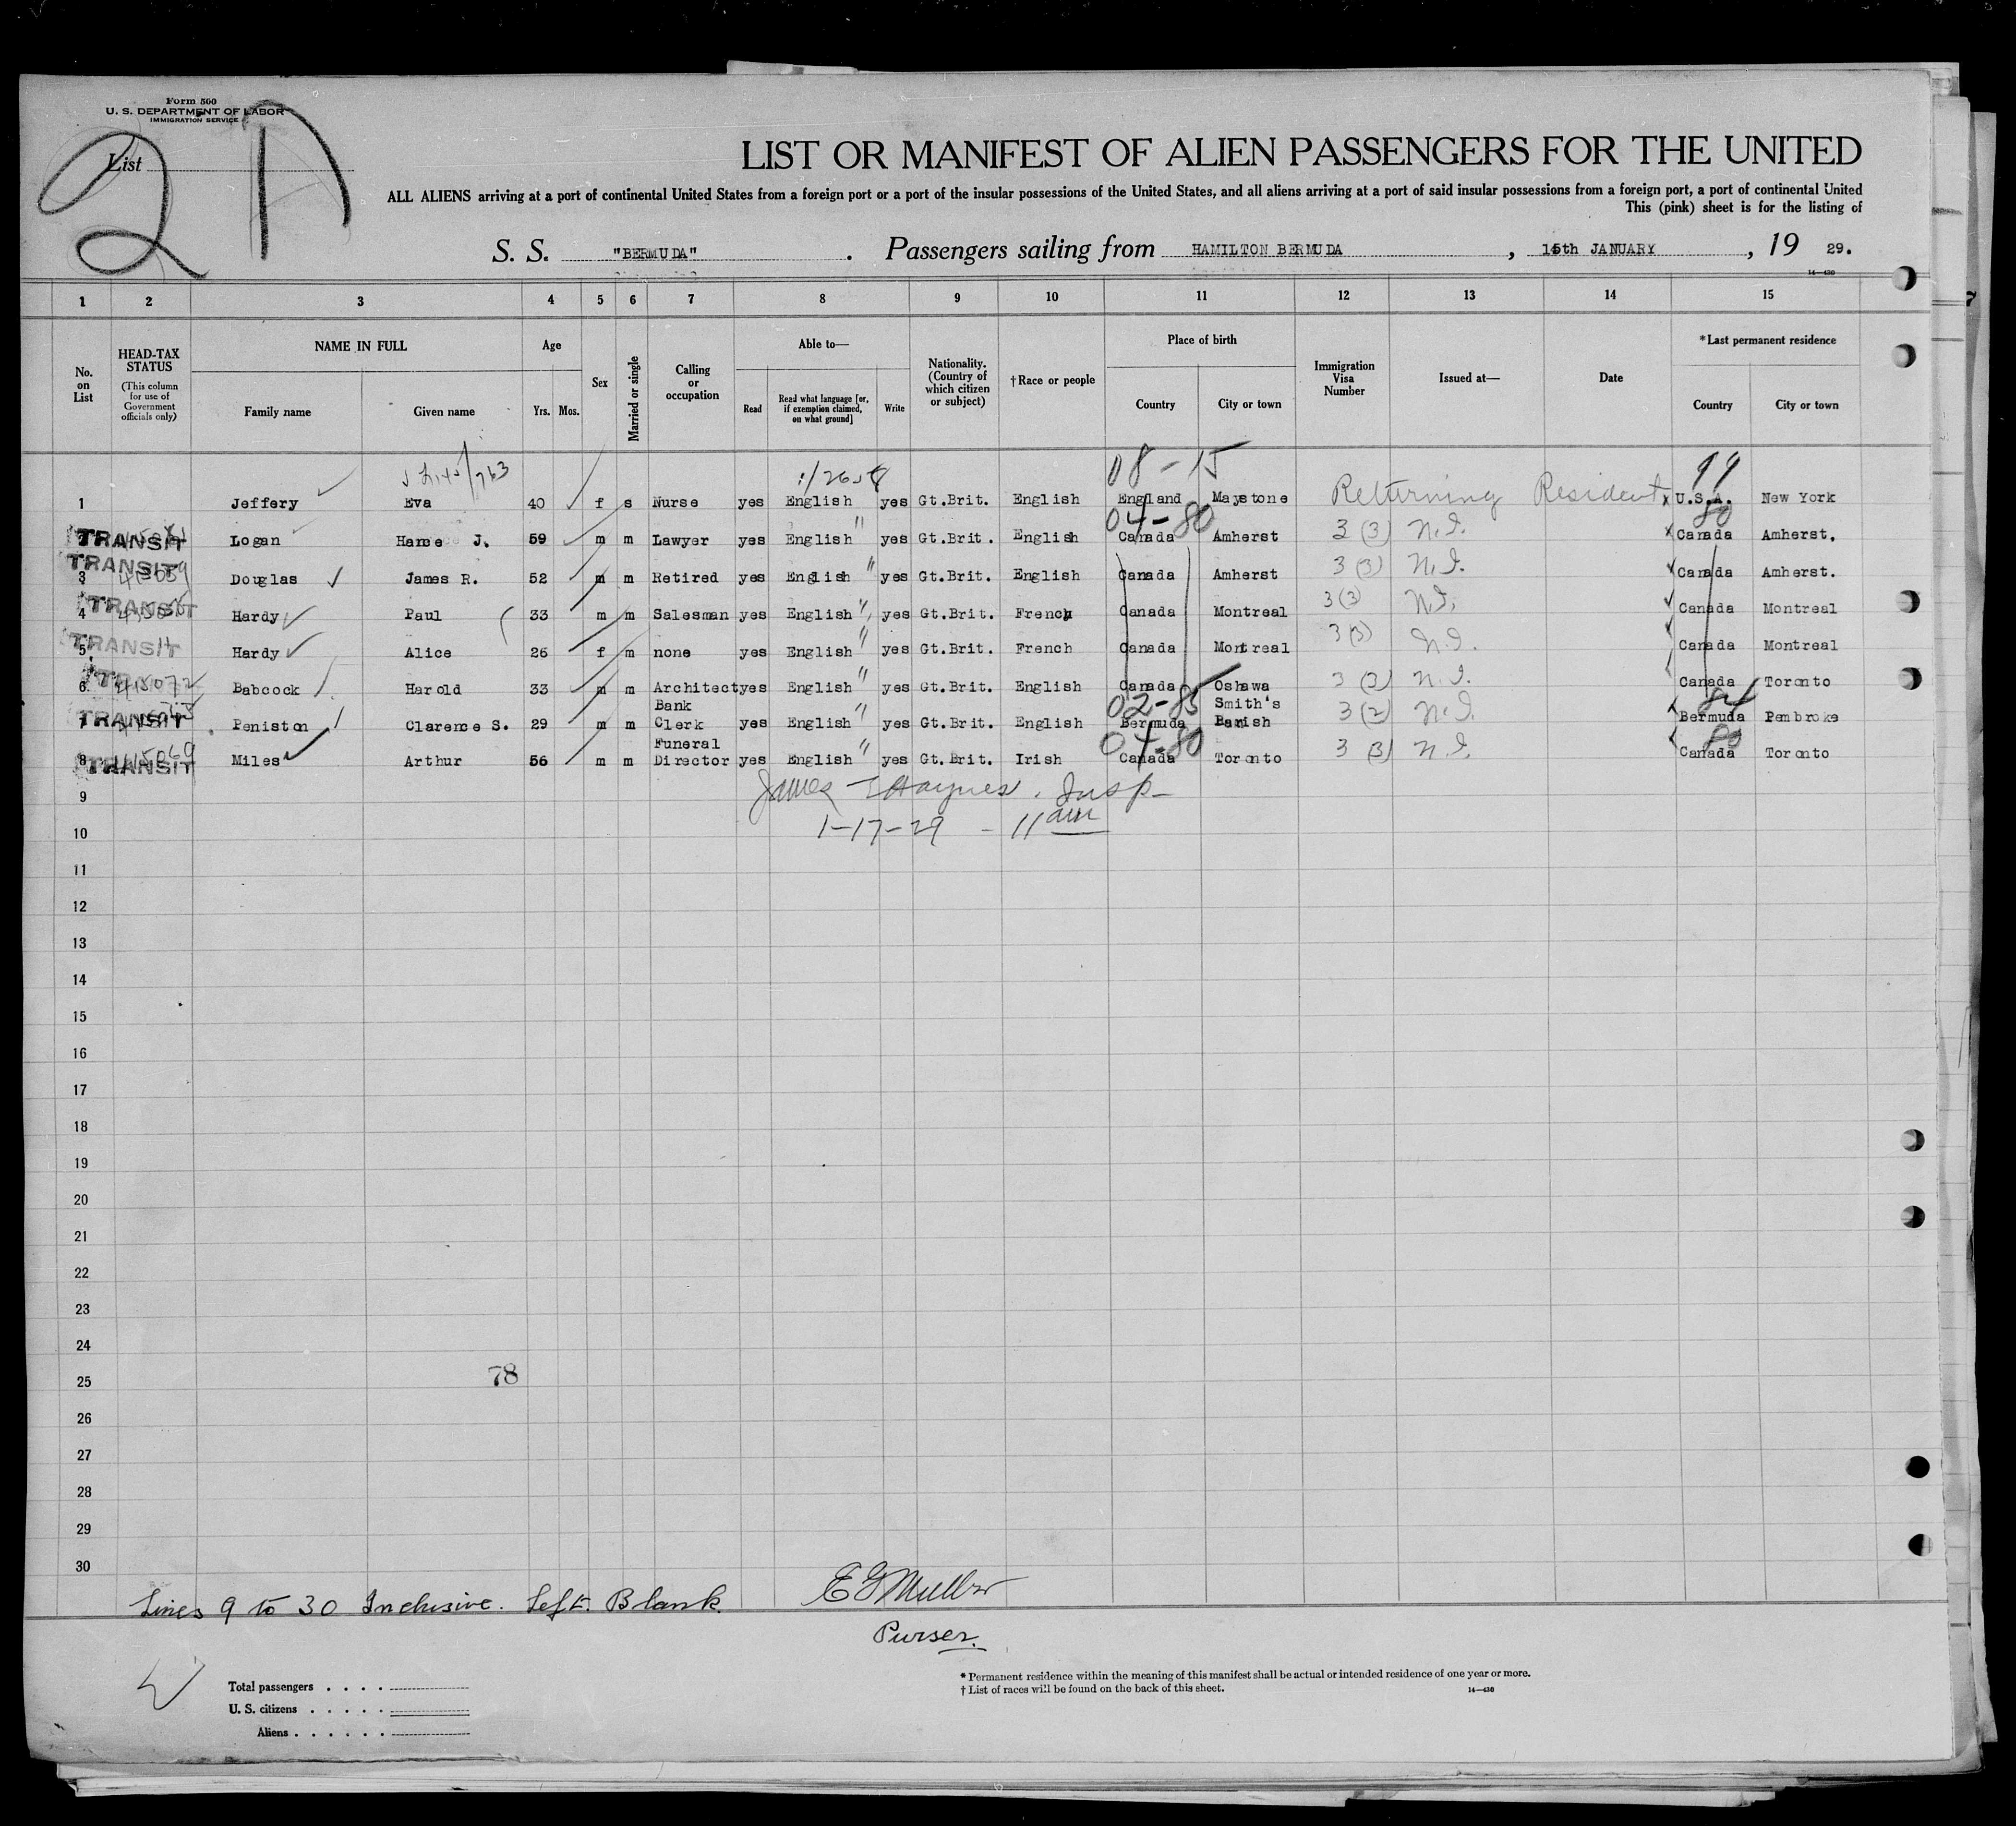 Form 560
U. S. DEPARTMENT OF LABOR
IMMIGRATION SERVICE
List
2 A
LIST OR MANIFEST OF ALIEN PASSENGERS FOR THE UNITED
ALL ALIENS arriving at a port of continental United States from a foreign port or a port of the insular possessions of the United States, and all aliens arriving at a port of said insular possessions from a foreign port, a port of continental United
This (pink) sheet is for the listing of
S. S. "BERMUDA". Passengers sailing from HAMILTON BERMUDA, 15th JANUARY, 19 29.
14—430
1 2 3 4 5 6 7 8 9 10 11 12 13 14 15
No. on List
HEAD-TAX STATUS (This column for use of Government officials only)
NAME IN FULL Family name Given name
Age Yrs. Mos.
Sex
Married or single
Calling or occupation
Able to— Read Read what language [or, if exemption claimed, on what ground] Write
Nationality. (Country of which citizen or subject)
† Race or people
Place of birth Country City or town
Immigration Visa Number
Issued at—
Date
*Last permanent residence Country City or town
08-15 99
1 Jeffery Eva 40 f s Nurse yes English yes Gt.Brit. English England Maystone Returning Resident x U.S.A. New York
04-80 80
TRANSIT Logan J. 59 m m Lawyer yes English " yes Gt.Brit. English Canada Amherst 3 (3) N.I. x Canada Amherst.
TRANSIT 3 Douglas James R. 52 m m Retired yes English " yes Gt.Brit. English Canada Amherst 3 (3) N.I. Canada Amherst.
TRANSIT 4 Hardy Paul 33 m m Salesman yes English " yes Gt.Brit. French Canada Montreal 3 (3) N.I. Canada Montreal
TRANSIT 5 Hardy Alice 26 f m none yes English " yes Gt.Brit. French Canada Montreal 3 (3) N.I. Canada Montreal
6 Babcock Harold 33 m m Architect yes English " yes Gt.Brit. English Canada Oshawa 3 (3) N.I. Canada Toronto
02-85 84
TRANSIT 7 Peniston Clarence S. 29 m m Bank Clerk yes English " yes Gt.Brit. English Bermuda Smith's Parish 3 (2) N.I. Bermuda Pembroke
04-80 80
TRANSIT 8 Miles Arthur 56 m m Funeral Director yes English " yes Gt.Brit. Irish Canada Toronto 3 (3) N.I. Canada Toronto
9 James Haynes. Insp-
10 1-17-29 - 11 am
11
12
13
14
15
16
17
18
19
20
21
22
23
24
25 78
26
27
28
29
30
Lines 9 to 30 Inclusive. Left Blank. E G Muller
Purser.
Total passengers . . . .
U. S. citizens . . . . .
Aliens . . . . . .
* Permanent residence within the meaning of this manifest shall be actual or intended residence of one year or more.
† List of races will be found on the back of this sheet. 14—430